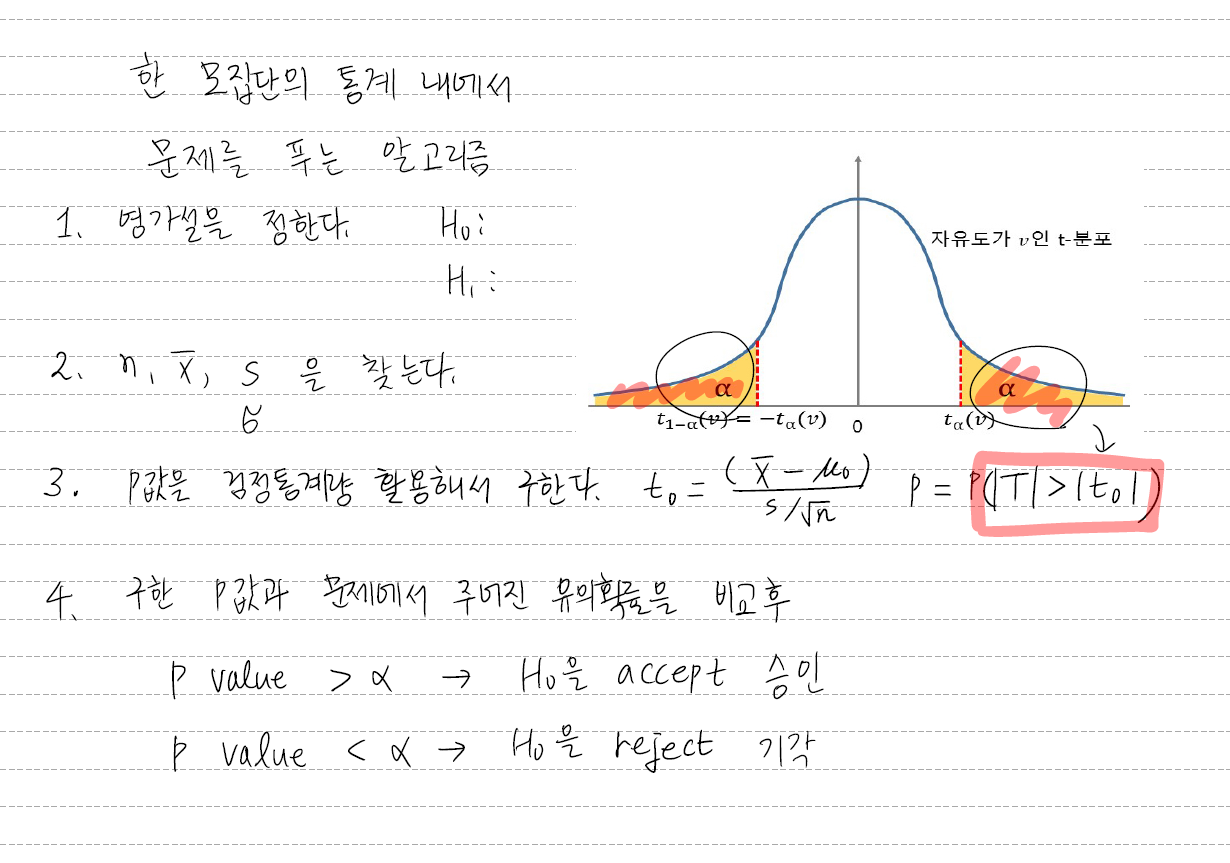 한 모집단의 통계 내에서
문제를 푸는 알고리즘
1. 영가설을 정한다. H₀:
H₁:
자유도가 v인 t-분포
2. n, x̄, s 을 찾는다.
α α
t₁₋α(v) = −tα(v) 0 tα(v)
3. P값을 검정통계량 활용해서 구한다. t₀ = (x̄ − μ₀) / (s/√n) p = P(|T| > |t₀|)
4. 구한 P값과 문제에서 주어진 유의확률을 비교후
p value > α → H₀을 accept 승인
p value < α → H₀을 reject 기각